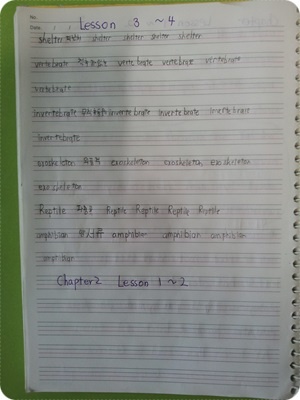 No.
Date
Lesson 3 ~ 4
shelter shelter shelter shelter shelter
vertebrate vertebrate vertebrate vertebrate
vertebrate
invertebrate invertebrate invertebrate invertebrate
invertebrate
exoskeleton 외골격 exoskeleton exoskeleton exoskeleton
exoskeleton
Reptile 파충류 Reptile Reptile Reptile Reptile
amphibian 양서류 amphibian amphibian amphibian
amphibian
Chapter2 Lesson 1 ~ 2